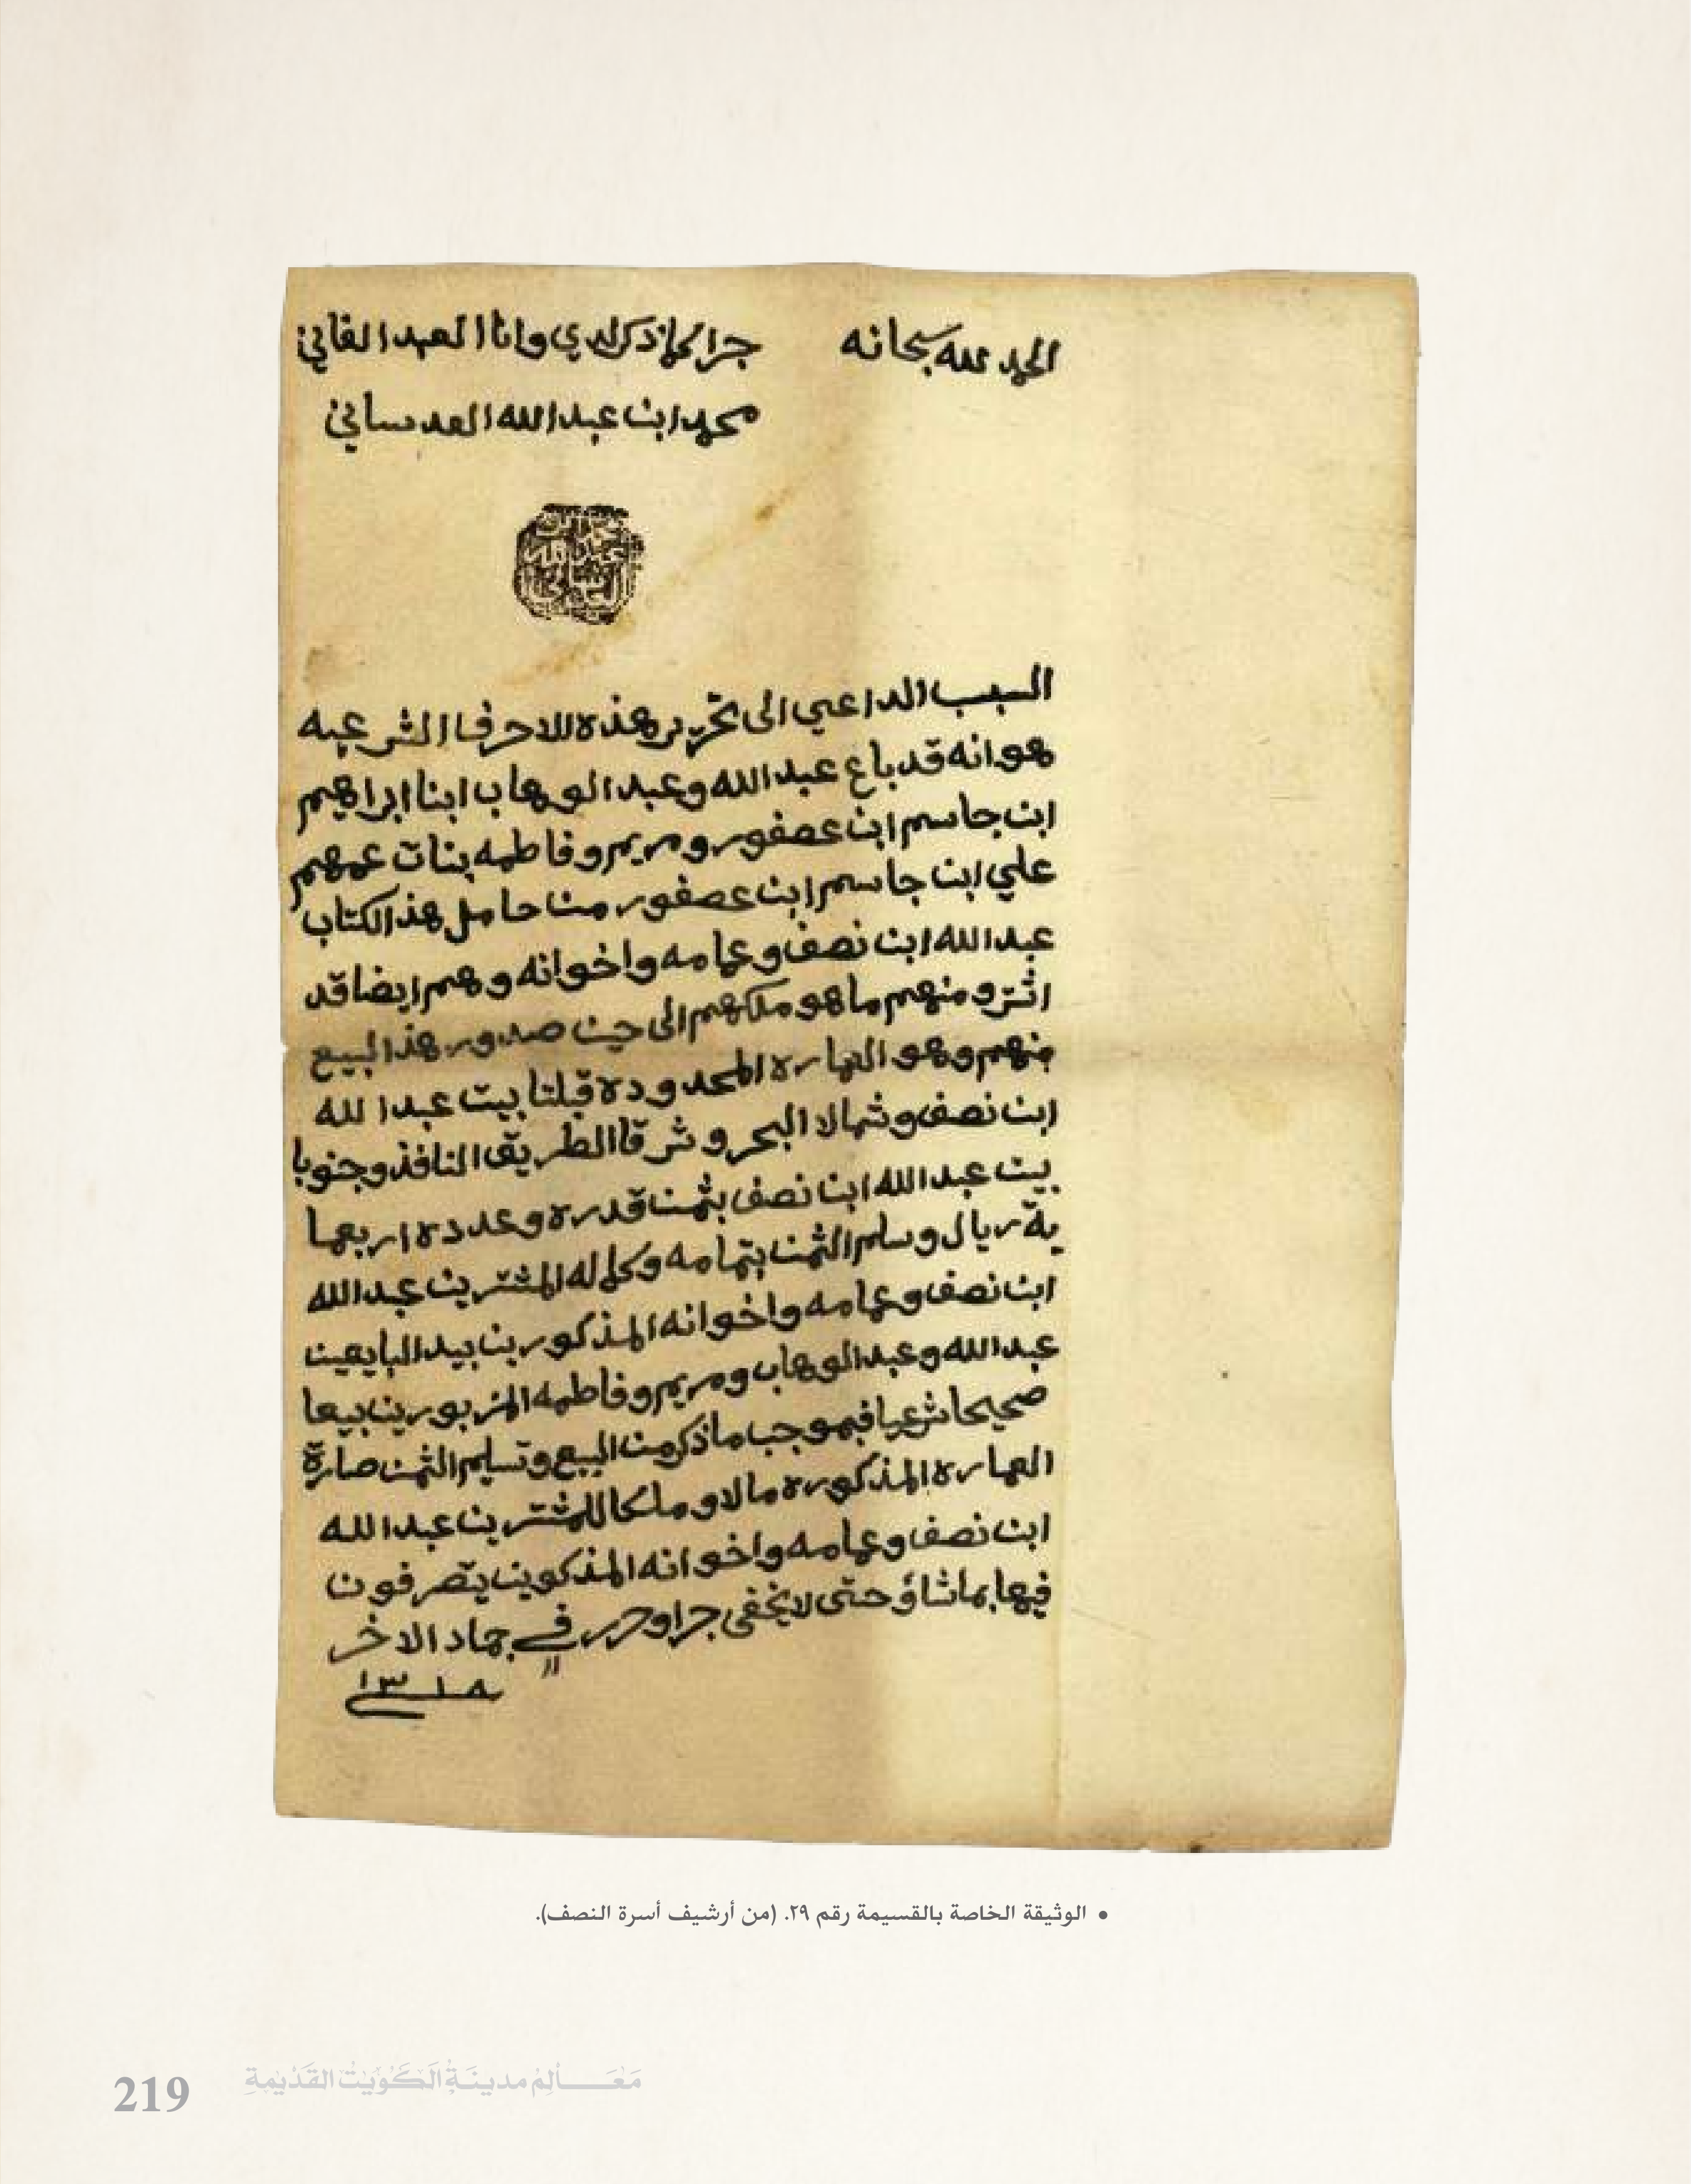 الحمد لله سبحانه
جرا كما ذكر لدي وانا العبد الفاني
محمد ابن عبدالله العدساني
السبب الداعي الى تحرير هذه الاحرفا الشرعيه
هو انه قد باع عبدالله وعبدالوهاب ابنا ابراهيم
ابن جاسم ابن عصفور ومريم وفاطمه بنات عمهم
علي ابن جاسم ابن عصفور منا حامل هذالكتاب
عبدالله ابن نصف وعمامه واخوانه وهم ايضا قد
اشترو منهم ما هو ملكهم الى حين صدور هذالبيع
منهم وهو العماره المحدوده قبلتا بيت عبدالله
ابن نصف وشمالا البحر وشرقا الطريق النافذ وجنوبا
بيت عبدالله ابن نصف بثمنا قدره وعدده اربعما
ية ريال وسلم الثمن بتمامه وكماله المشترين عبدالله
ابن نصف وعمامه واخوانه المذكورين بيد البايعين
عبدالله وعبدالوهاب ومريم وفاطمه المزبورين بيعا
صحيحا شرعيا فبموجب ما ذكر من البيع وتسليم الثمن صارة
العماره المذكوره مالا وملكا للمشترين عبدالله
ابن نصف وعمامه واخوانه المذكوين يتصرفون
فيها بما شاؤ حتى لا يخفى جرا وحرر في جماد الاخر
١٣١٨
• الوثيقة الخاصة بالقسيمة رقم ٢٩. (من أرشيف أسرة النصف).
219 معالم مدينة الكويت القديمة